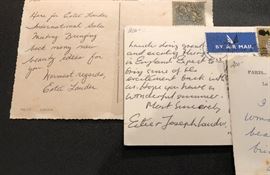 Here for Estée Lauder
International Sales
Meeting Bringing
back many new
beauty ideas for
you.
Warmest regards,
Estée Lauder
Lauder doing great
and exciting things
in England. Expect to
bring some of its
excitement back with
us. Hope you have a
wonderful summer.
Most Sincerely
Estee & Joseph Lauder
BY AIR MAIL
PARIS
I